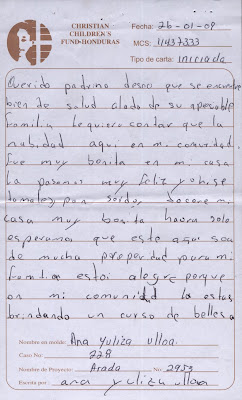 CHRISTIAN
CHILDREN'S
FUND-HONDURAS
Fecha: 26-01-09
MCS: 11437333
Tipo de carta: iniciada
Querido padrino deseo que se encuentre
bien de salud alado de su apresable
familia le quiero contar que la
nabidad aqui en mi comunidad
fue muy bonita en mi casa
la pasamos muy feliz yo hise
tamales, pan, soido, decore mi
casa muy bonita haora solo
esperamos que este año sea
de mucha properdad para mi
familia estoi alegre porque
en mi comunidad la estas
brindando un curso de bellesa
Nombre en molde: Ana Yuliza ulloa
Caso No: 228
Nombre de Proyecto: Arada No: 2953
Escrita por: ana yuliza ulloa